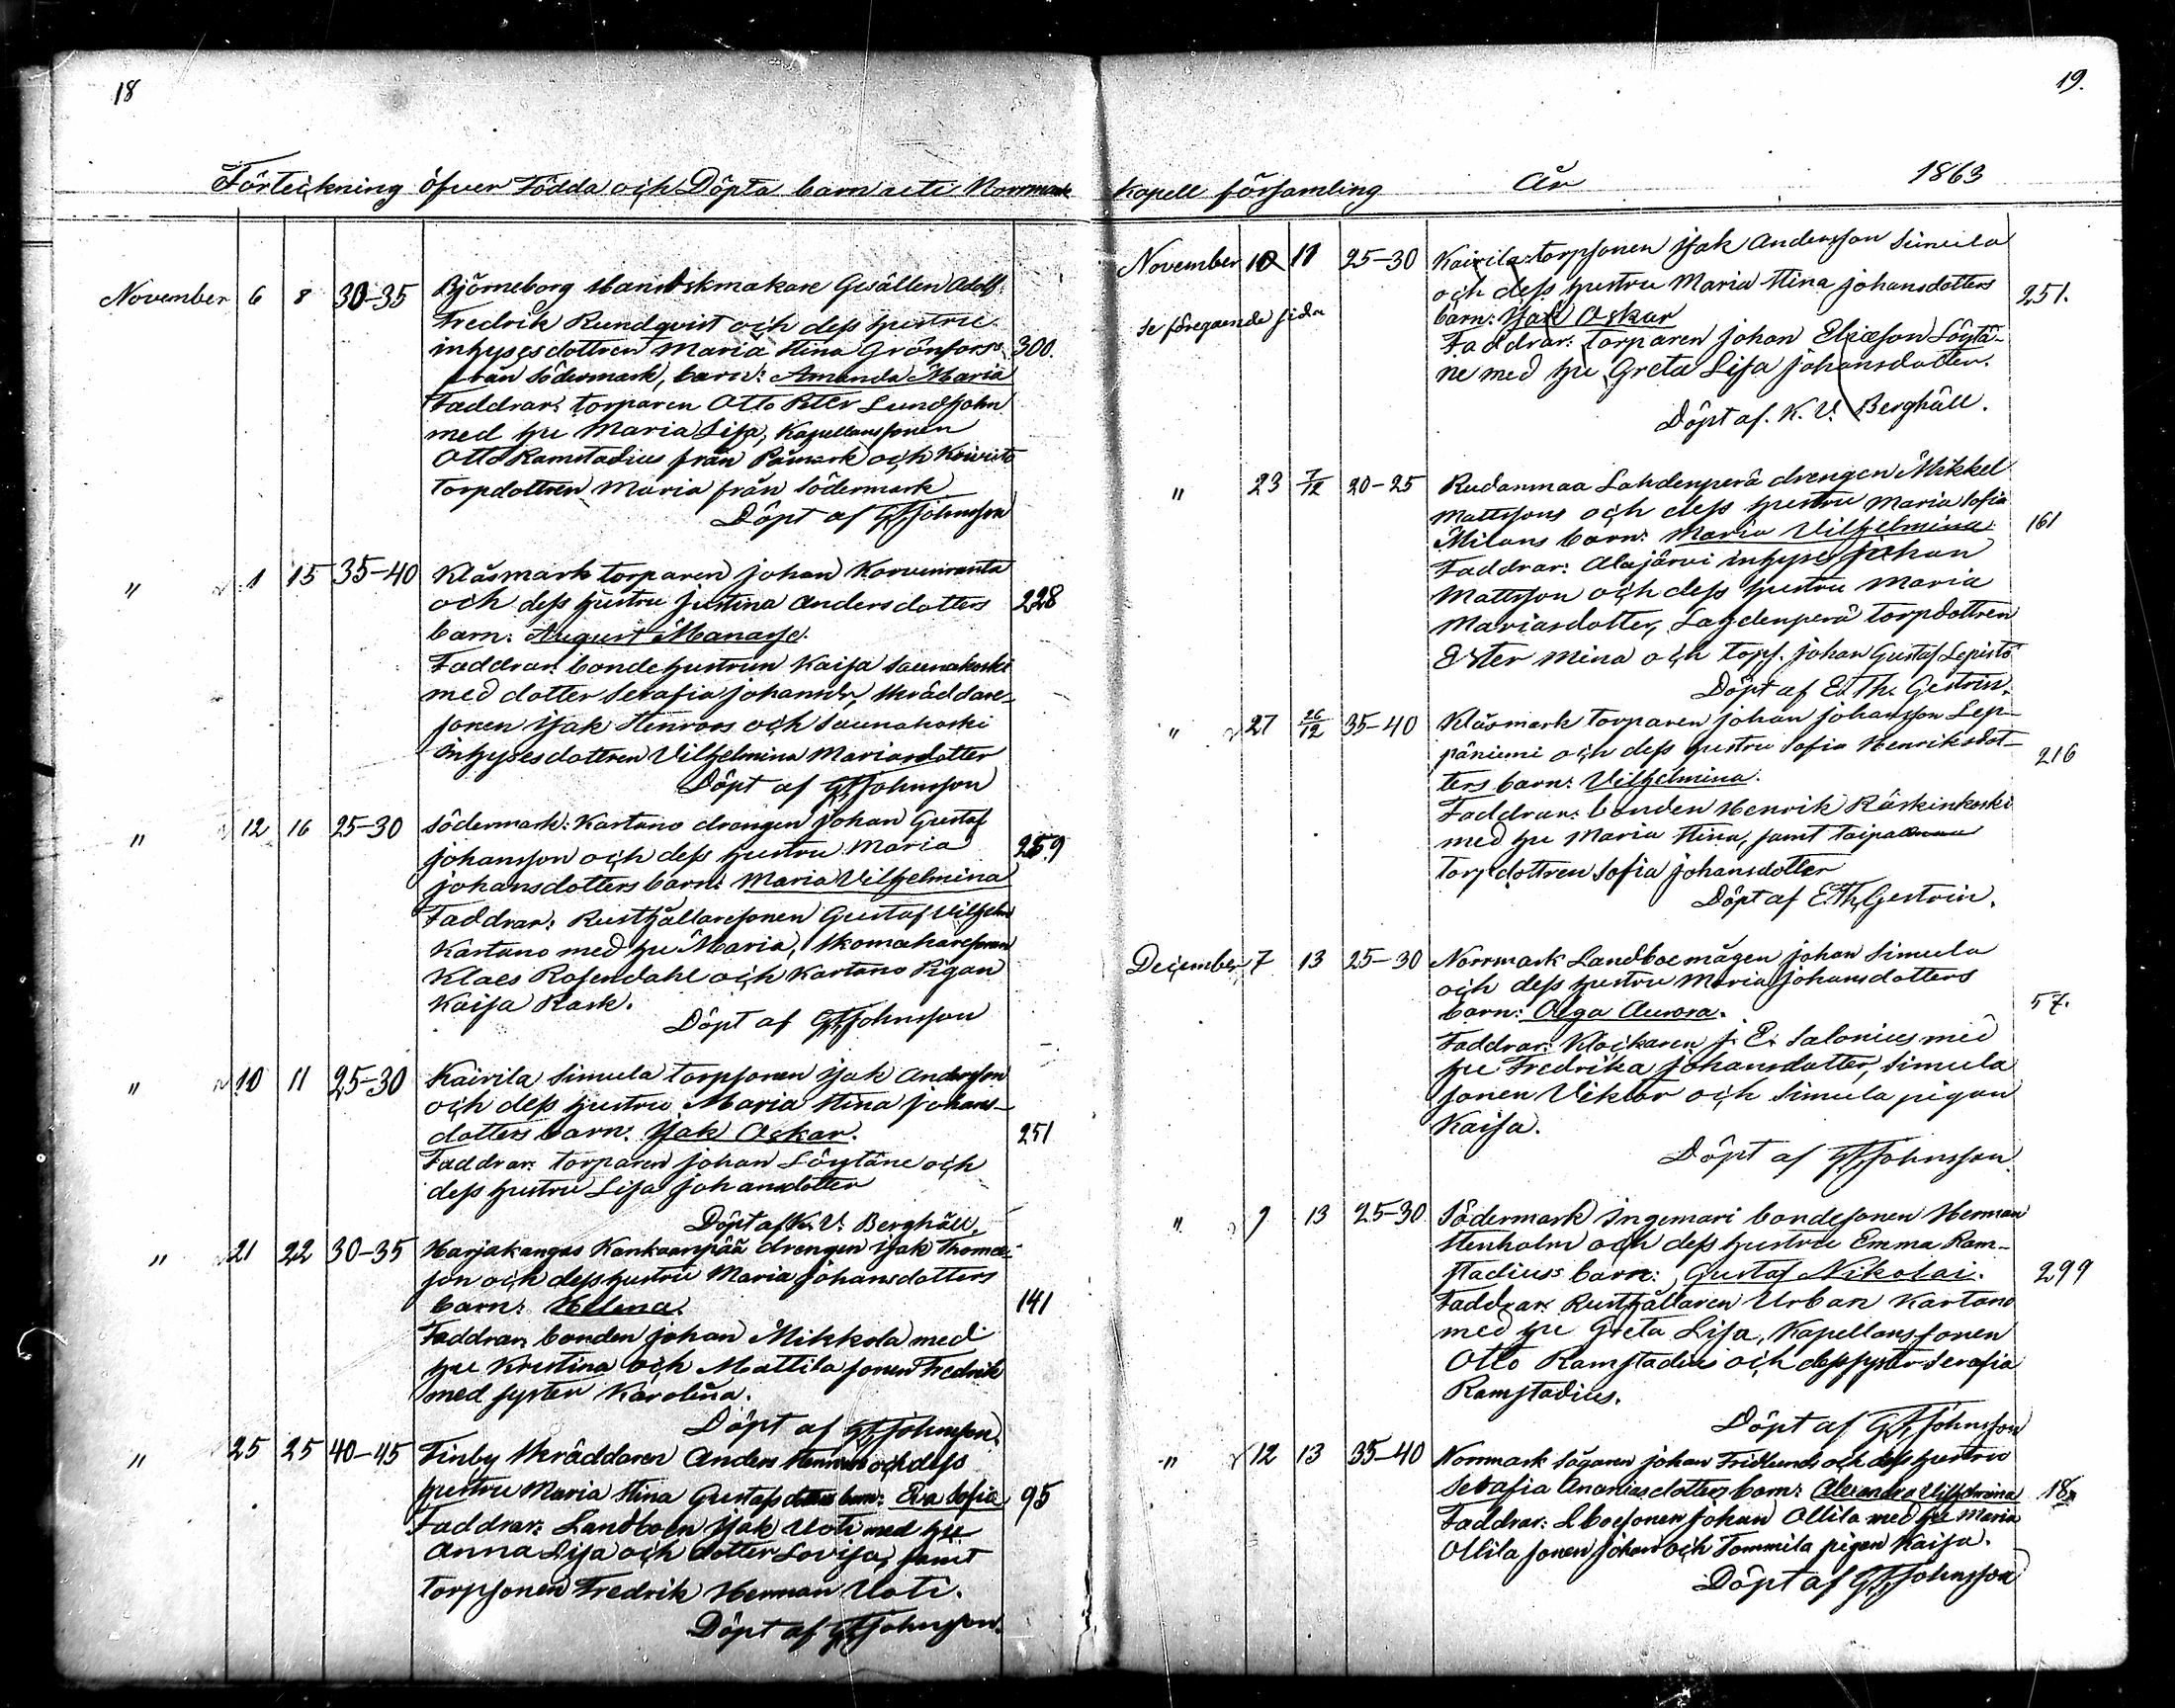 18
Förteckning öfver Födda och Döpta barn uti Norrmark
November 6 8 30-35 Björneborg Handskmakare Gesällen Adolf
Fredrik Rundqvist och dess hustru
inhysesdottren Maria Stina Grönfors's 300.
från Södermark, barn: Amanda Maria
Faddrar: torparen Otto Peter Lundsohn
med hu Maria Lisa, Kapellanssonen
Otto Ramstadius från Påmark och Koivisto
torpdottren Maria från Södermark
Döpt af G.F. Johnsson
" 1 15 35-40 Klåsmark torparen Johan Korvenranta
och dess hustru Justina Andersdotters 228
barn: August Manasse.
Faddrar: bondehustrun Kaisa Saunakoski
med dotter Serafia Johansdr, skräddare-
sonen Isak Stenroos och Saunakoski
inhysesdottren Vilhelmina Mariasdotter
Döpt af G.F. Johnsson
" 12 16 25-30 Södermark: Kartano drengen Johan Gustaf
Johansson och dess hustru Maria 259
Johansdotters barn: Maria Vilhelmina
Faddrar: Rusthållaresonen Gustaf Vilhelm
Kartano med hu Maria, skomakaresonen
Klaes Rosendahl och Kartano Pigan
Kaisa Rask.
Döpt af G.F. Johnsson
" 10 11 25-30 Kairila Simula torpsonen Isak Andersson
och dess hustru Maria Stina Johans-
dotters barn: Isak Oskar. 251
Faddrar: torparen Johan Löytäne och
dess hustru Lisa Johansdotter
Döpt af K. V. Berghäll.
" 21 22 30-35 Harjakangas Kankaanpää drengen Isak Thomas-
son och dess hustru Maria Johansdotters
barn: Helena. 141
Faddrar: bonden Johan Mikkola med
hu Kristina och Mattila sonen Fredrik
med syster Karolina.
Döpt af G.F. Johnsson.
" 25 25 40-45 Finby skräddaren Anders och dess
hustru Maria Stina Gustafsdotters barn: Eva Sofia 95
Faddrar: Landboen Isak Uoti med hu
Anna Lisa och dotter Lovisa, samt
torpsonen Fredrik Herman Uoti.
Döpt af G.F. Johnsson.
19.
Kapell församling År 1863
November 10 11 25-30 Kairila torpsonen Isak Andersson Simula
och dess hustru Maria Stina Johansdotters 251.
se föregaende sida barn: Isak Oskar
Faddrar: torparen Johan Eliasson Löytä-
ne med hu Greta Lisa Johansdotter.
Döpt af. K. V. Berghäll.
" 23 7/12 20-25 Rudanmaa Lahdenperä drengen Mikkel
Mattssons och dess hustru Maria Sofia
Milans barn: Maria Vilhelmina 161
Faddrar: Alajärvi inhyses Johan
Mattsson och dess hustru Maria
Mariasdotter, Lahdenperä torpdottren
Ester Mina och torps. Johan Gustaf Lepistö
Döpt af E. Th. Gestrin.
" 27 26/12 35-40 Klåsmark torparen Johan Johansson Lep-
päniemi och dess hustru Sofia Henriksdot- 216
ters barn: Vilhelmina.
Faddrar: bonden Henrik Räskinkoski
med hu Maria Stina, samt
torpdottren Sofia Johansdotter
Döpt af E. Th. Gestrin.
December 7 13 25-30 Norrmark Landboemågen Johan Simula
och dess hustru Maria Johansdotters
barn: Olga Aurora. 57.
Faddrar: Klockaren J. E. Salonius med
hu Fredrika Johansdotter, Simula
sonen Viktor och Simula pigan
Kaisa.
Döpt af G.F. Johnsson.
" 9 13 25-30 Södermark Ingemari bondesonen Herman
Stenholm och dess hustru Emma Ram-
stadius's barn: Gustaf Nikolai. 299
Faddrar: Rusthållaren Urban Kartano
med hu Greta Lisa, Kapellanssonen
Otto Ramstadius och dess syster Serafia
Ramstadius.
Döpt af G.F. Johnsson
" 12 13 35-40 Norrmark sågaren Johan Fridlunds och dess hustru
Serafia Ananiasdotters barn: Alexandra Vilhelmina 18
Faddrar: Lboesonen Johan Ollila med hu Maria
Ollila sonen Johan och Tommila pigan Kaisa.
Döpt af G.F. Johnsson